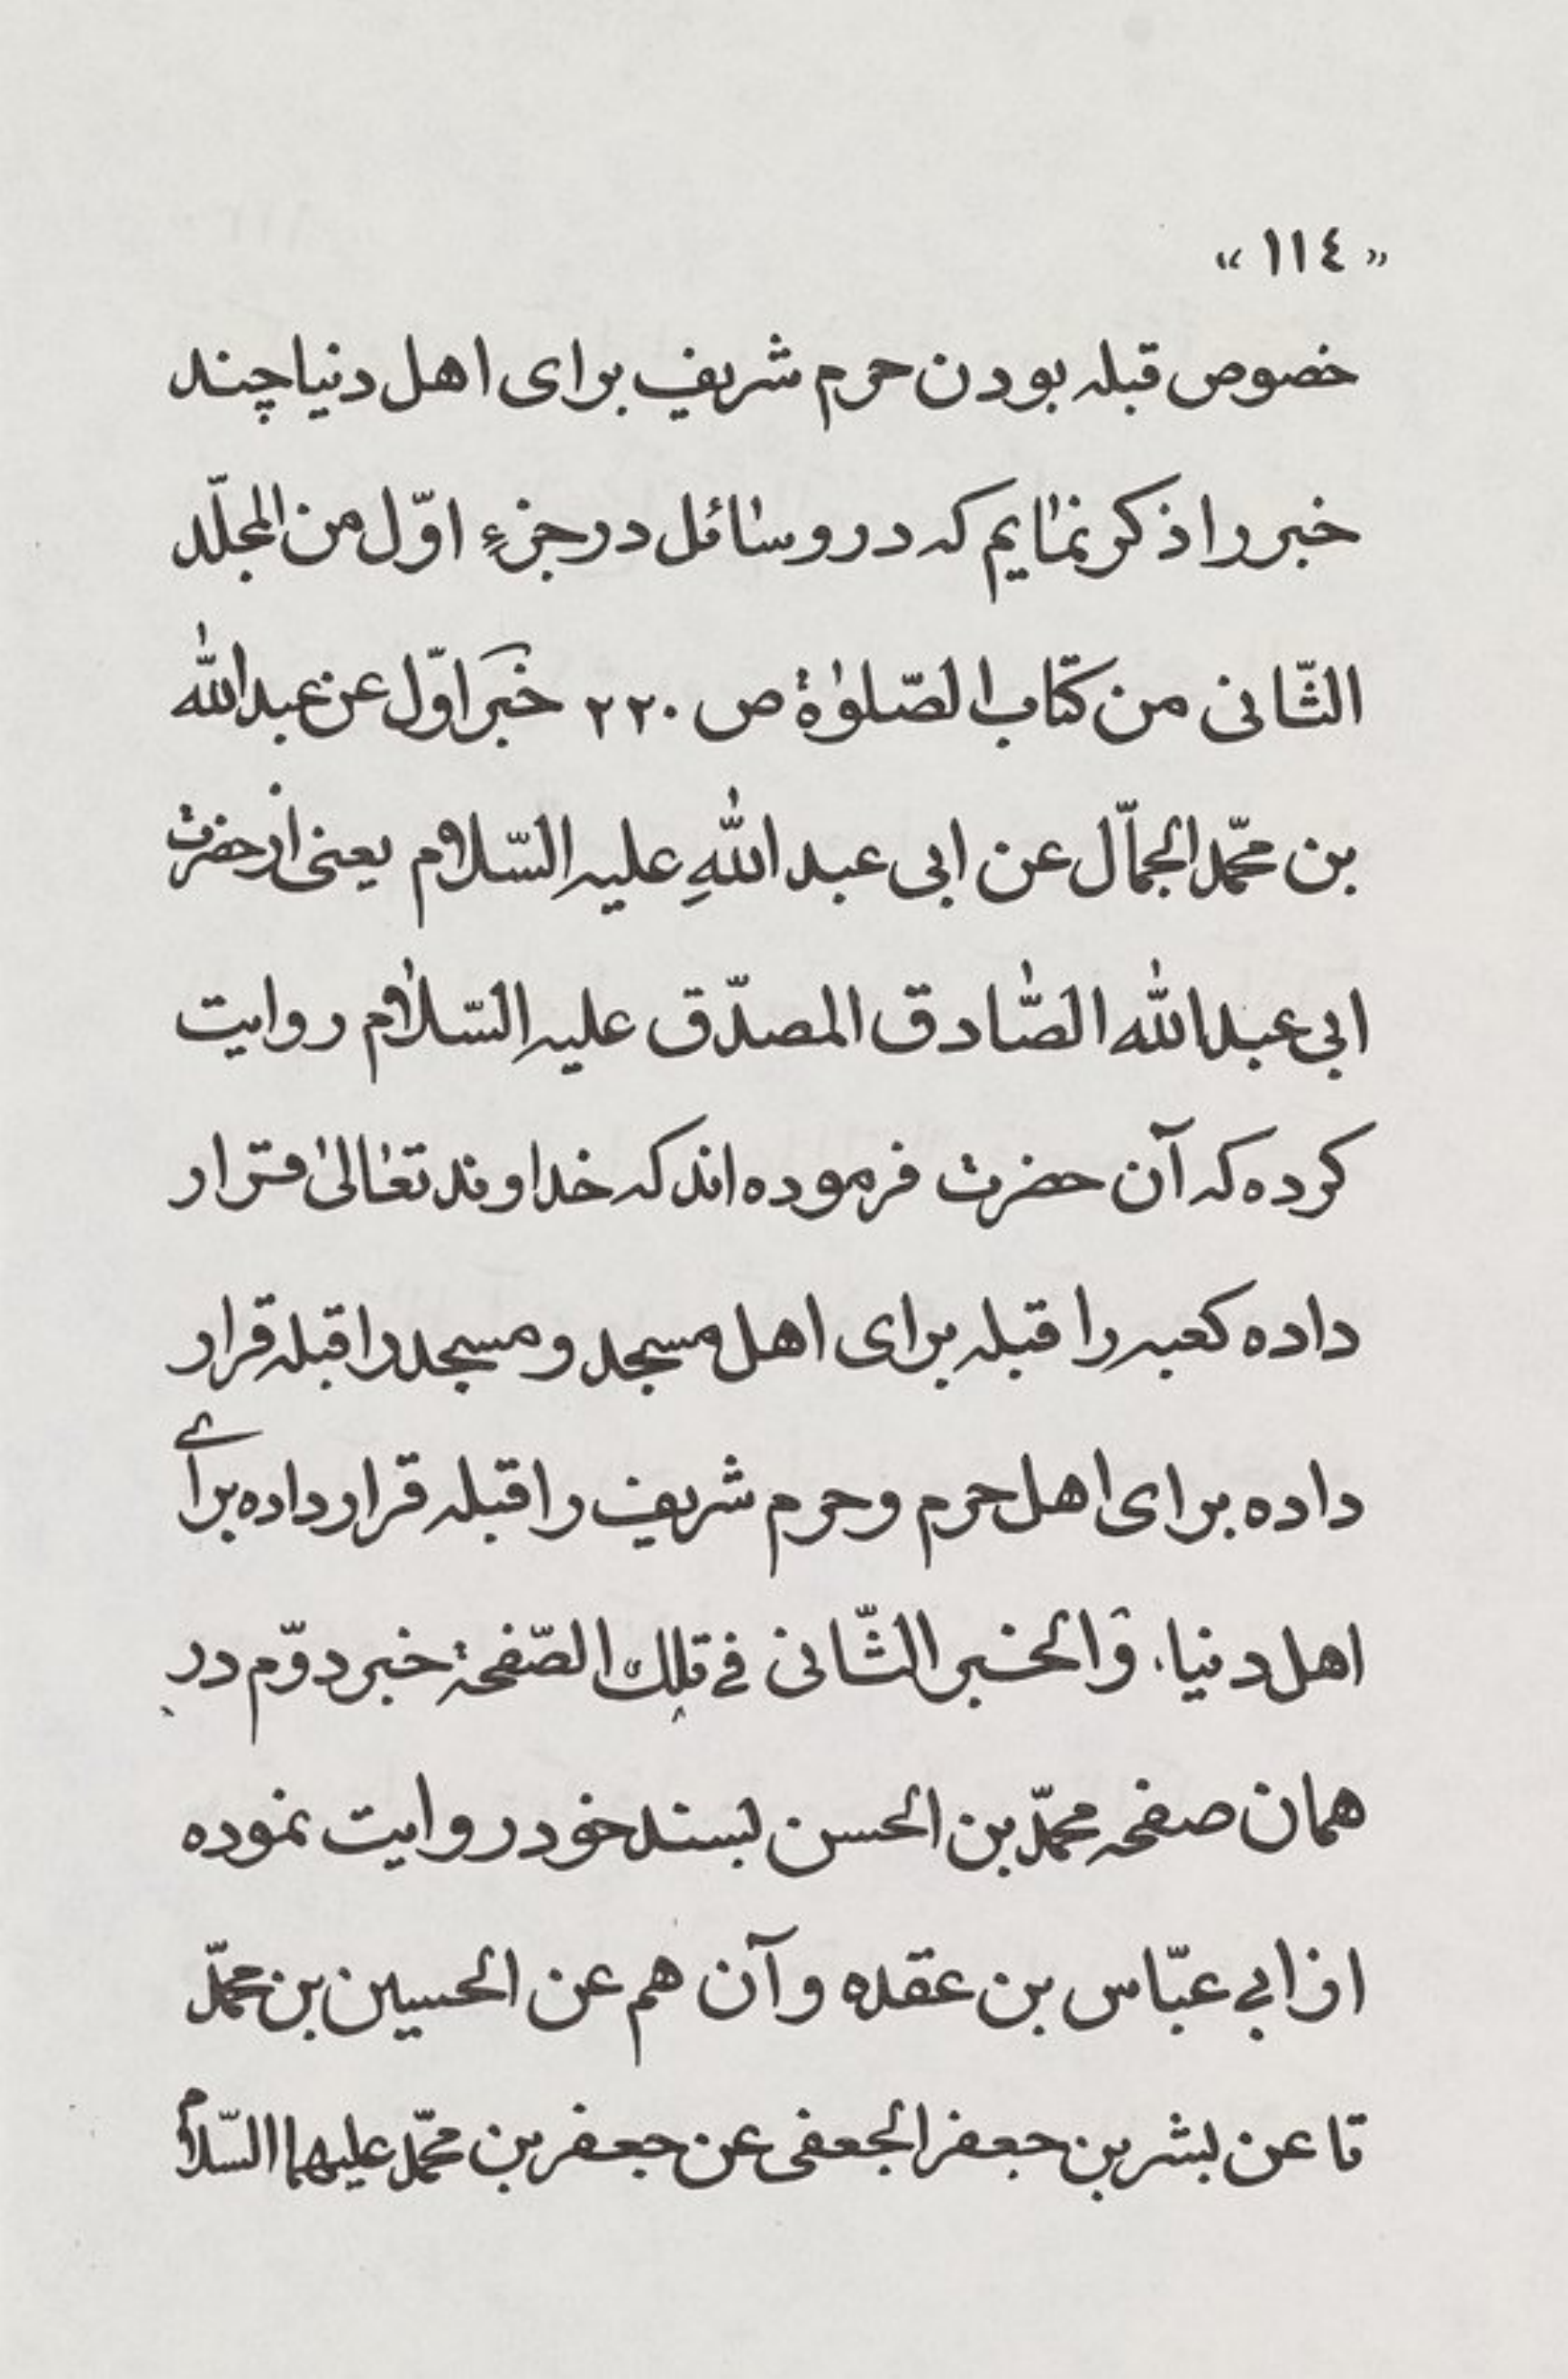 «١١٤»
خصوص قبله بودن حرم شریف برای اهل دنیا چند
خبر را ذکر نمٰایم که در وسٰائل در جزءِ اوّل من المجلّد
الثّانی من کتاب الصّلوٰة ص ٢٢٠ خَبَر اوّل عن عبدالله
بن محمّد الجمّال عن ابی عبد اللهِ علیه السّلام یعنی از حضرت
ابی عبدالله الصّٰادق المصدّق علیه السّلاٰم روایت
کرده که آن حضرت فرموده اند که خداوند تعٰالیٰ قرار
داده کعبه را قبله برای اهل مسجد و مسجد را قبله قرار
داده برای اهل حرم و حرم شریف را قبله قرار داده برای
اهل دنیا. وَالخبر الثّانی فی تلك الصّفحة خبر دوّم در
همان صفحه محمّد بن الحسن بسند خود روایت نموده
از ابی عبّاس بن عقده و آن هم عن الحسین بن محمّد
تا عن بشر بن جعفر الجعفی عن جعفر بن محمّد علیهما السّلام